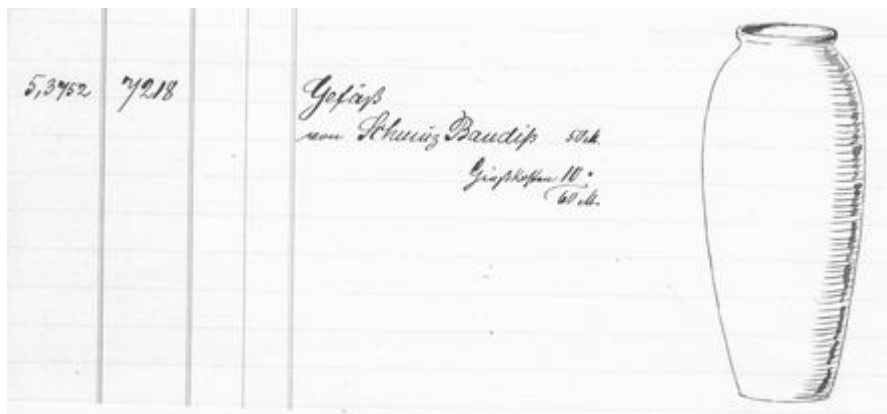 5,3752 7218 Gefäß
von Schmuz Baudiß 50 M.
Gießkosten 10 "
60 M.